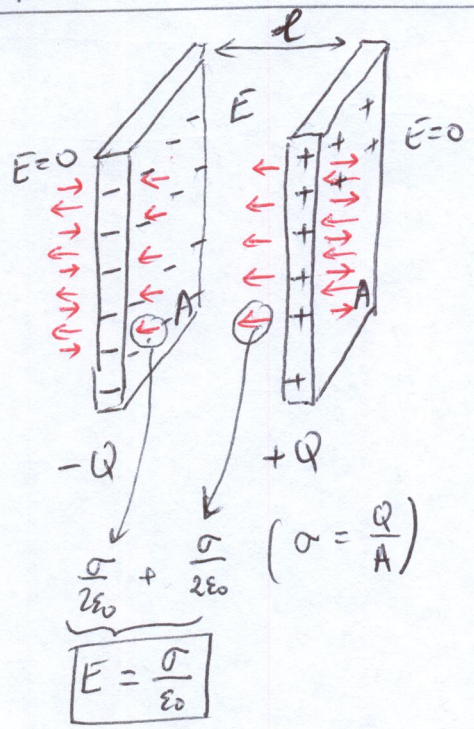 ℓ
E
E=0
E=0
A
A
-Q
+Q
σ/2ε₀ + σ/2ε₀ (σ = Q/A)
E = σ/ε₀